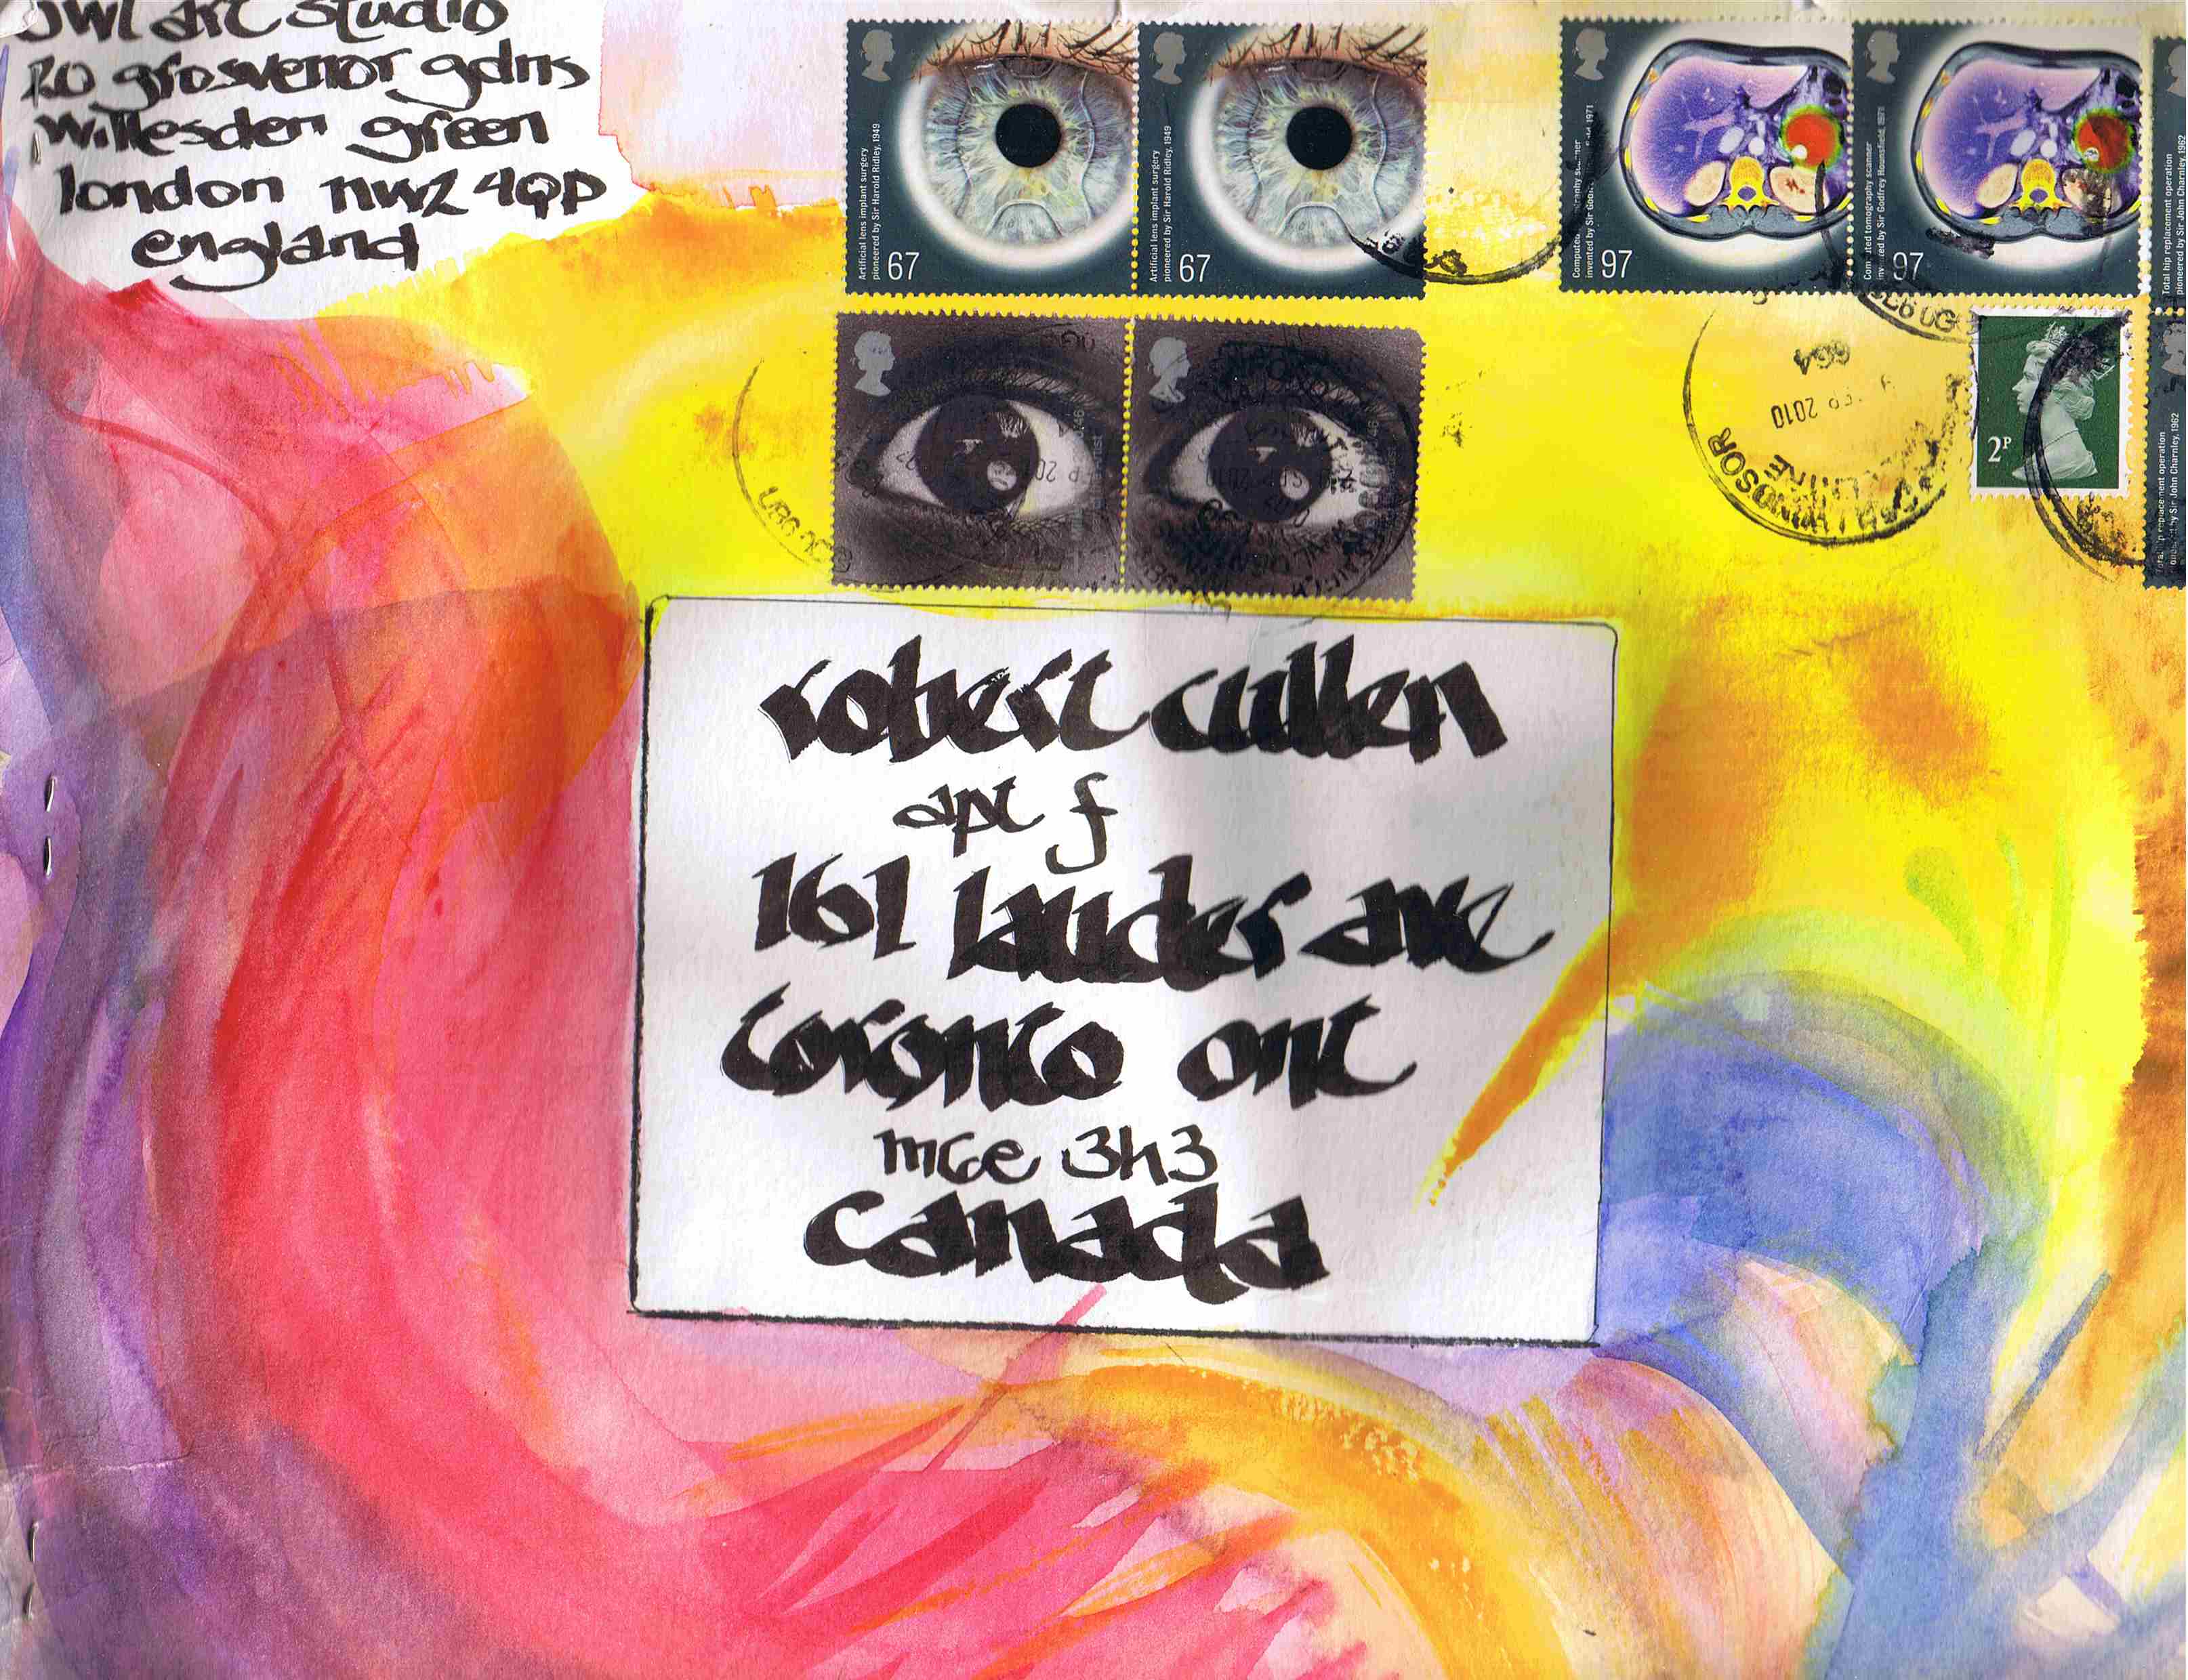 owl art studio
20 grosvenor gdns
willesden green
london nw2 4QP
england
Artificial lens implant surgery
pioneered by Sir Harold Ridley, 1949
67
Artificial lens implant surgery
pioneered by Sir Harold Ridley, 1949
67
Computed tomography scanner
invented by Sir Godfrey 1971
97
Computed tomography scanner
invented by Sir Godfrey Hounsfield, 1971
97
Total hip replacement operation
pioneered by Sir John Charnley, 1962
2P
Total hip replacement operation
pioneered by Sir John Charnley, 1962
SEP 2010
664
WINDSOR
robert cullen
apt f
161 lauder ave
toronto ont
m6e 3h3
canada